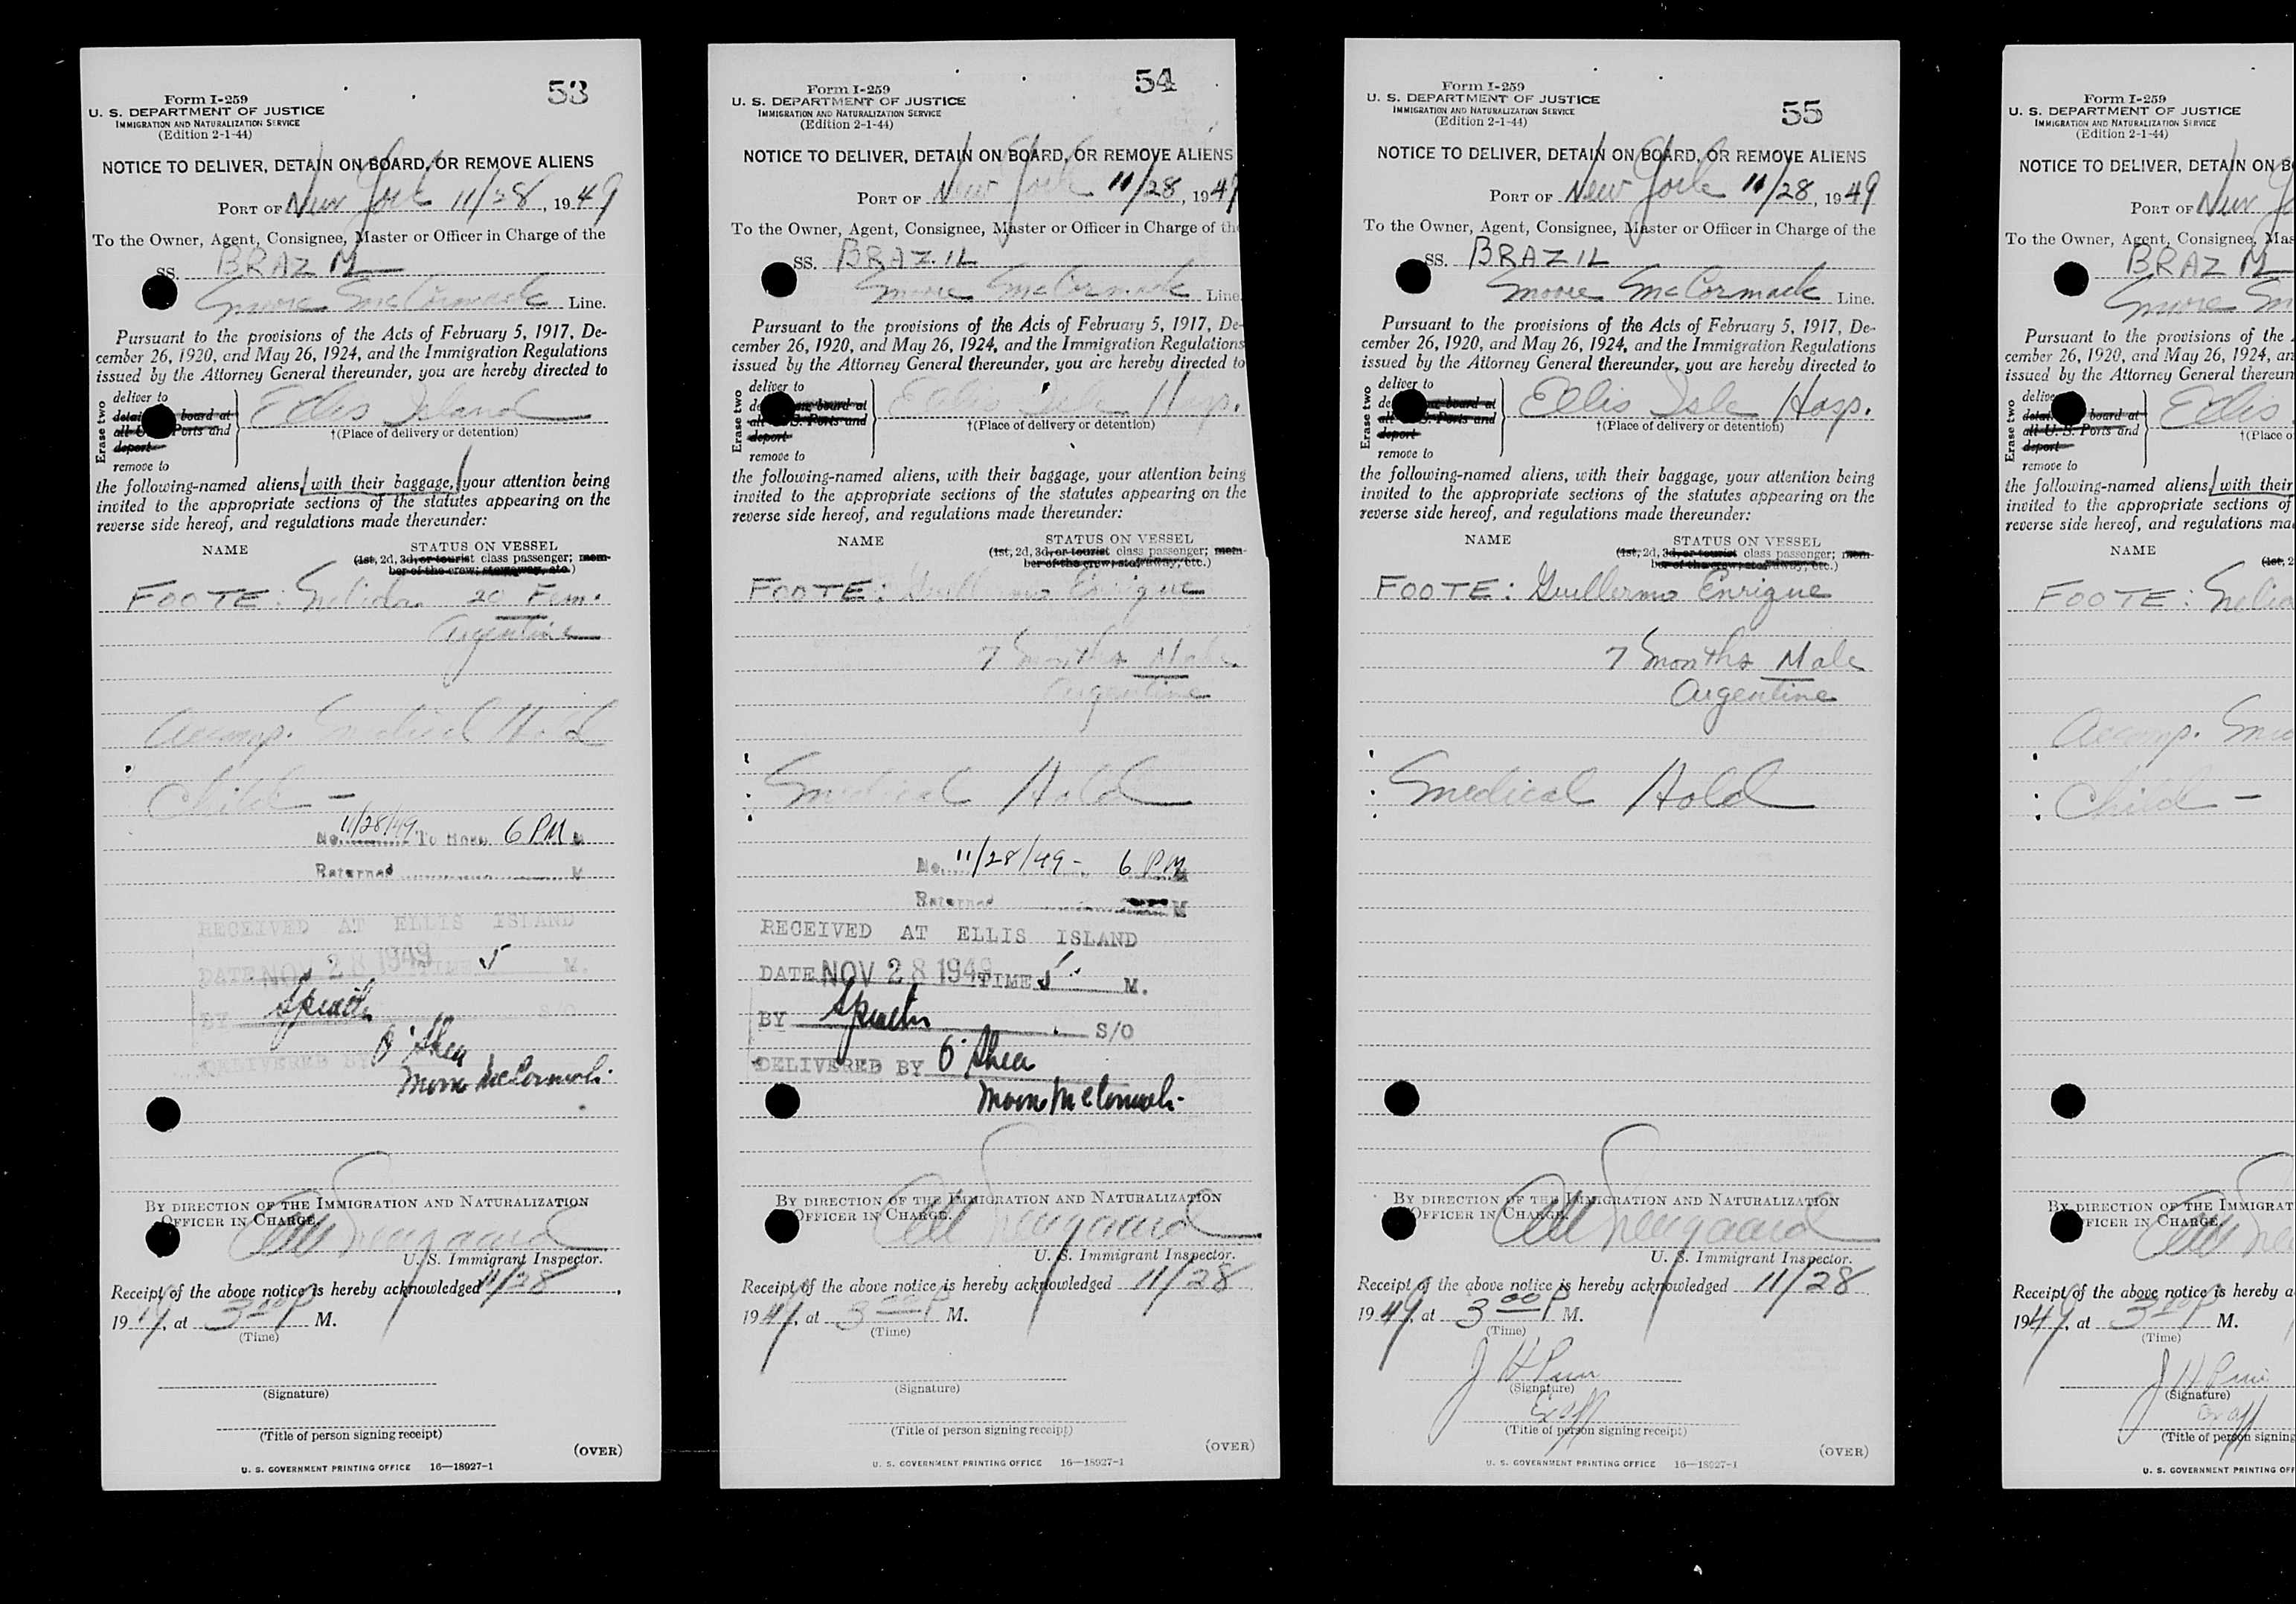 53
Form I-259
U. S. DEPARTMENT OF JUSTICE
IMMIGRATION AND NATURALIZATION SERVICE
(Edition 2-1-44)
NOTICE TO DELIVER, DETAIN ON BOARD, OR REMOVE ALIENS
PORT OF New York 11/28, 1949
To the Owner, Agent, Consignee, Master or Officer in Charge of the
SS. BRAZIL
Moore McCormack Line.
Pursuant to the provisions of the Acts of February 5, 1917, De-
cember 26, 1920, and May 26, 1924, and the Immigration Regulations
issued by the Attorney General thereunder, you are hereby directed to
Erase two
deliver to
board at
Ports and
deport
remove to
Ellis Island
†(Place of delivery or detention)
the following-named aliens, with their baggage, your attention being
invited to the appropriate sections of the statutes appearing on the
reverse side hereof, and regulations made thereunder:
NAME STATUS ON VESSEL
(1st, 2d, 3d, or tourist class passenger; mem-
ber of the crew; stowaway, etc.)
FOOTE: 20 Fem.
Argentine
Accomp. Medical Hold
Child –
No. 11/28/49 To Hosp. 6 PM M
Returned M
RECEIVED AT ELLIS ISLAND
DATE NOV 28 1949 TIME 5 M.
BY S/O
DELIVERED BY O'Shea
Moore McCormack
BY DIRECTION OF THE IMMIGRATION AND NATURALIZATION
OFFICER IN CHARGE.
U. S. Immigrant Inspector.
Receipt of the above notice is hereby acknowledged 11/28,
1949, at 3 00 P M.
(Time)
(Signature)
(Title of person signing receipt)
(OVER)
U. S. GOVERNMENT PRINTING OFFICE 16—18927-1
54
Form I-259
U. S. DEPARTMENT OF JUSTICE
IMMIGRATION AND NATURALIZATION SERVICE
(Edition 2-1-44)
NOTICE TO DELIVER, DETAIN ON BOARD, OR REMOVE ALIENS
PORT OF New York 11/28, 1949
To the Owner, Agent, Consignee, Master or Officer in Charge of the
SS. BRAZIL
Moore McCormack Line.
Pursuant to the provisions of the Acts of February 5, 1917, De-
cember 26, 1920, and May 26, 1924, and the Immigration Regulations
issued by the Attorney General thereunder, you are hereby directed to
Erase two
deliver to
on board at
S. Ports and
deport
remove to
Ellis Isle Hosp.
†(Place of delivery or detention)
the following-named aliens, with their baggage, your attention being
invited to the appropriate sections of the statutes appearing on the
reverse side hereof, and regulations made thereunder:
NAME STATUS ON VESSEL
(1st, 2d, 3d, or tourist class passenger; mem-
ber of the crew; stowaway, etc.)
FOOTE: Guillermo Enrique
7 months Male
Argentine
Medical Hold
No. 11/28/49 – 6 PM M
Returned M
RECEIVED AT ELLIS ISLAND
DATE NOV 28 1949 TIME 5 M.
BY S/O
DELIVERED BY O'Shea
Moore McCormack
BY DIRECTION OF THE IMMIGRATION AND NATURALIZATION
OFFICER IN CHARGE.
U. S. Immigrant Inspector.
Receipt of the above notice is hereby acknowledged 11/28
1949, at 3 00 P M.
(Time)
(Signature)
(Title of person signing receipt)
(OVER)
U. S. GOVERNMENT PRINTING OFFICE 16—18927-1
55
Form I-259
U. S. DEPARTMENT OF JUSTICE
IMMIGRATION AND NATURALIZATION SERVICE
(Edition 2-1-44)
NOTICE TO DELIVER, DETAIN ON BOARD, OR REMOVE ALIENS
PORT OF New York 11/28, 1949
To the Owner, Agent, Consignee, Master or Officer in Charge of the
SS. BRAZIL
Moore McCormack Line.
Pursuant to the provisions of the Acts of February 5, 1917, De-
cember 26, 1920, and May 26, 1924, and the Immigration Regulations
issued by the Attorney General thereunder, you are hereby directed to
Erase two
deliver to
on board at
S. Ports and
deport
remove to
Ellis Isle Hosp.
†(Place of delivery or detention)
the following-named aliens, with their baggage, your attention being
invited to the appropriate sections of the statutes appearing on the
reverse side hereof, and regulations made thereunder:
NAME STATUS ON VESSEL
(1st, 2d, 3d, or tourist class passenger; mem-
ber of the crew; stowaway, etc.)
FOOTE: Guillermo Enrique
7 months Male
Argentine
Medical Hold
BY DIRECTION OF THE IMMIGRATION AND NATURALIZATION
OFFICER IN CHARGE.
U. S. Immigrant Inspector.
Receipt of the above notice is hereby acknowledged 11/28
1949, at 3 00 P M.
(Time)
J H
(Signature)
(Title of person signing receipt)
(OVER)
U. S. GOVERNMENT PRINTING OFFICE 16—18927-1
Form I-259
U. S. DEPARTMENT OF JUSTICE
IMMIGRATION AND NATURALIZATION SERVICE
(Edition 2-1-44)
NOTICE TO DELIVER, DETAIN ON B
PORT OF New
To the Owner, Agent, Consignee, Mas
BRAZIL
Moore
Pursuant to the provisions of the
cember 26, 1920, and May 26, 1924, an
issued by the Attorney General thereun
Erase two
deliver
board at
all U. S. Ports and
deport
remove to
Ellis
†(Place o
the following-named aliens, with their
invited to the appropriate sections of
reverse side hereof, and regulations ma
NAME
(1st, 2
FOOTE:
Accomp.
Child –
BY DIRECTION OF THE IMMIGRAT
OFFICER IN CHARGE.
Receipt of the above notice is hereby a
1949, at 3 00 P M.
(Time)
J H
(Signature)
(Title of person signing
U. S. GOVERNMENT PRINTING OFF